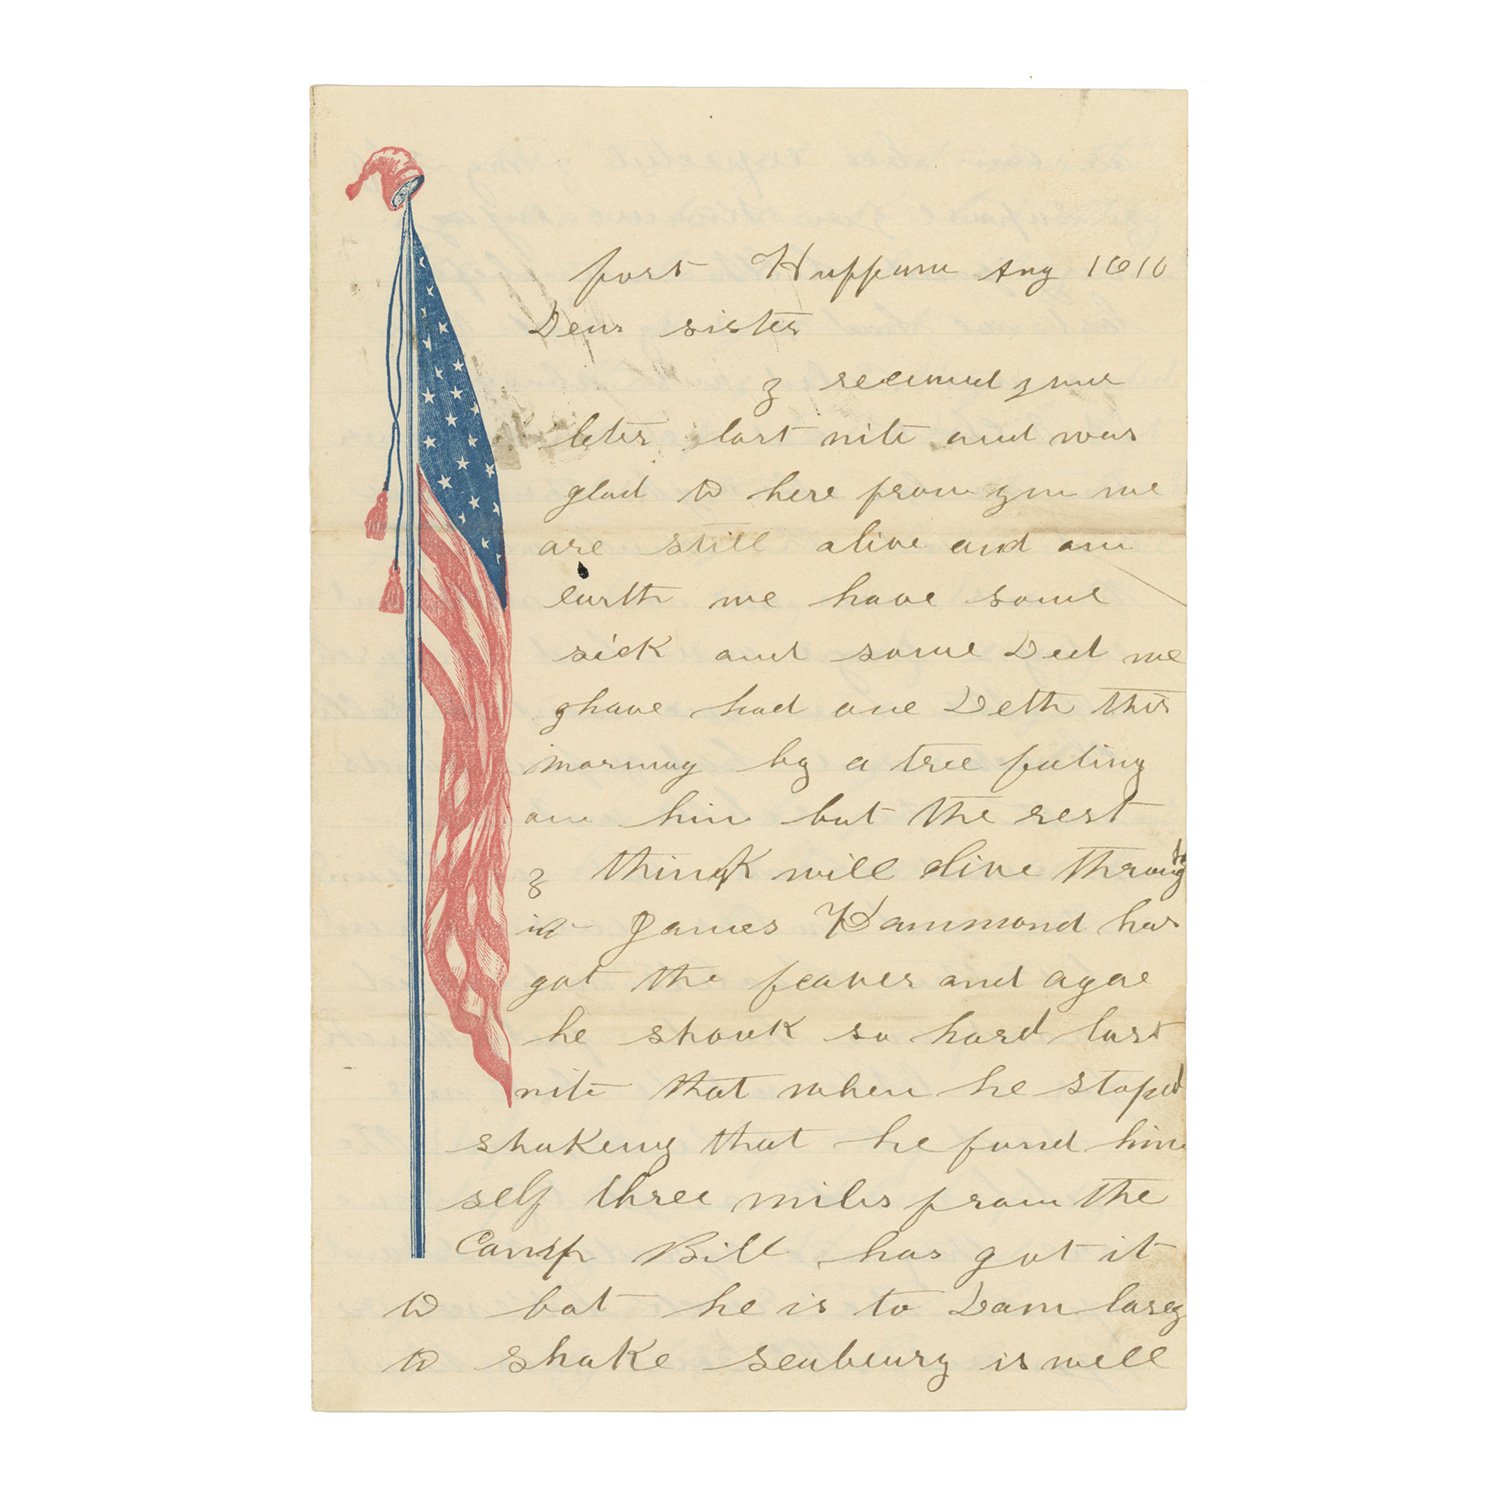 fort Huffman Aug 1616
Dear sister
I received your
leter last nite and was
glad to here from you we
are still alive and on
earth we have some
sick and some Ded we
have had one Deth this
morning by a tree faling
on him but the rest
I think will live throug
it James Hammond has
got the feaver and agae
he shouk so hard last
nite that when he stoped
shaking that he found him
self three miles from the
Camp Bill has got it
to but he is to Dam lasey
to shake Seabeury is well